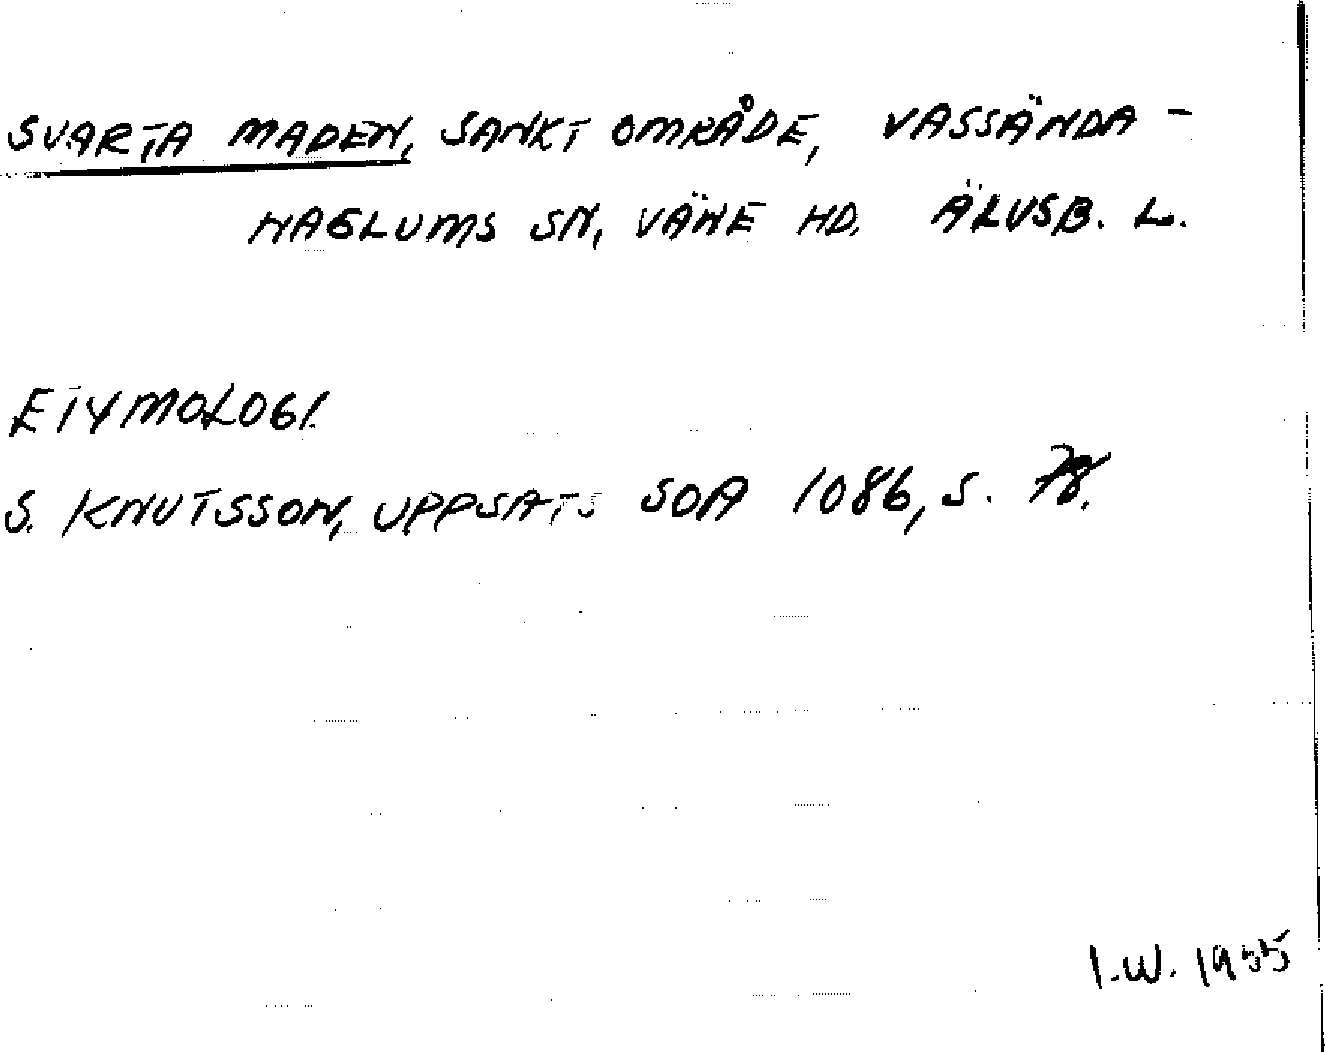 SVARTA MADEN, SANKT OMRÅDE, VASSÄNDA -
NAGLUMS SN, VÄNE HD. ÄLVSB. L.
ETYMOLOGI.
S. KNUTSSON, UPPSATS SOA 1086, S. 78.
I.W. 1955